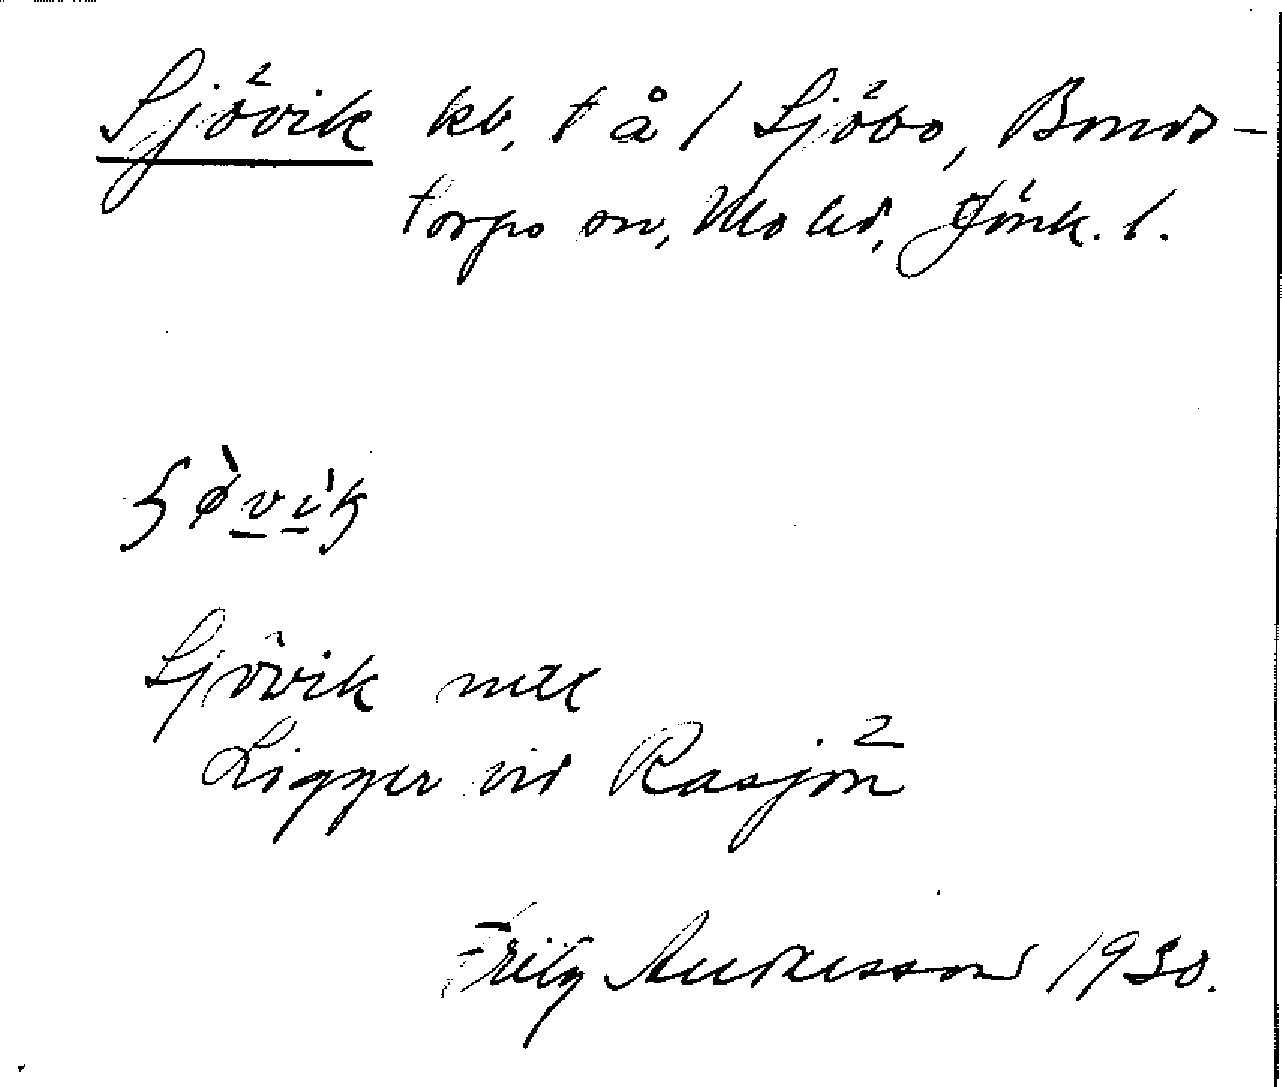 Sjövik kb, t å / Sjöbo, Bonds-
torps sn, Mo hd, Jönk. l.
Sjövik mtl
Ligger vid Rasjön
Fritz Andersson 1930.